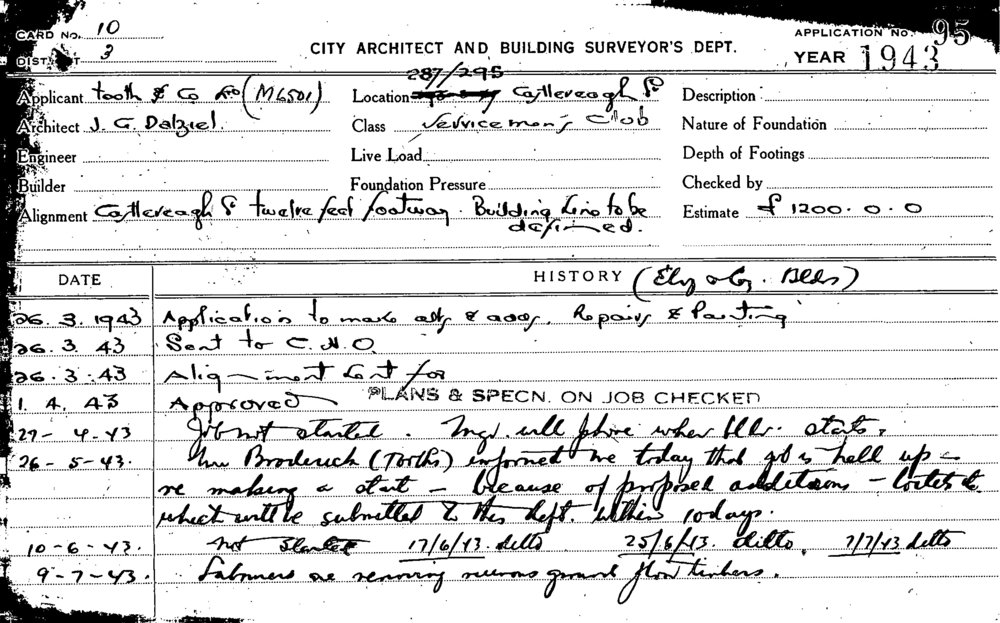 CARD No. 10
APPLICATION No. 95
DISTRICT 3
CITY ARCHITECT AND BUILDING SURVEYOR'S DEPT.
YEAR 1943
287/295
Applicant Tooth & Co Ltd (M6501) Location Castlereagh St Description
Architect J. G. Dalziel. Class Servicemen's Club Nature of Foundation
Engineer Live Load Depth of Footings
Builder Foundation Pressure Checked by
Alignment Castlereagh St twelve feet footway. Building Line to be Estimate £1200.0.0
defined.
DATE HISTORY (Eliz & Cas. Blds)
26.3.1943 Application to make alts & adds, Repairs & Painting
26.3.43 Sent to C.H.O.
26.3.43 Alignment sent for
1.4.43 Approved PLANS & SPECN. ON JOB CHECKED
27-4-43 Job not started. Mgr. will phone when bldr. starts.
26-5-43. Broderick (Tooths) informed me today that job is held up
re making a start - because of proposed additions -
which will be submitted to this dept. within 10 days.
10-6-43. Not Started 17/6/43. ditto 25/6/43. ditto, 7/7/43 ditto
9-7-43. Labourers are removing ground floor timbers.